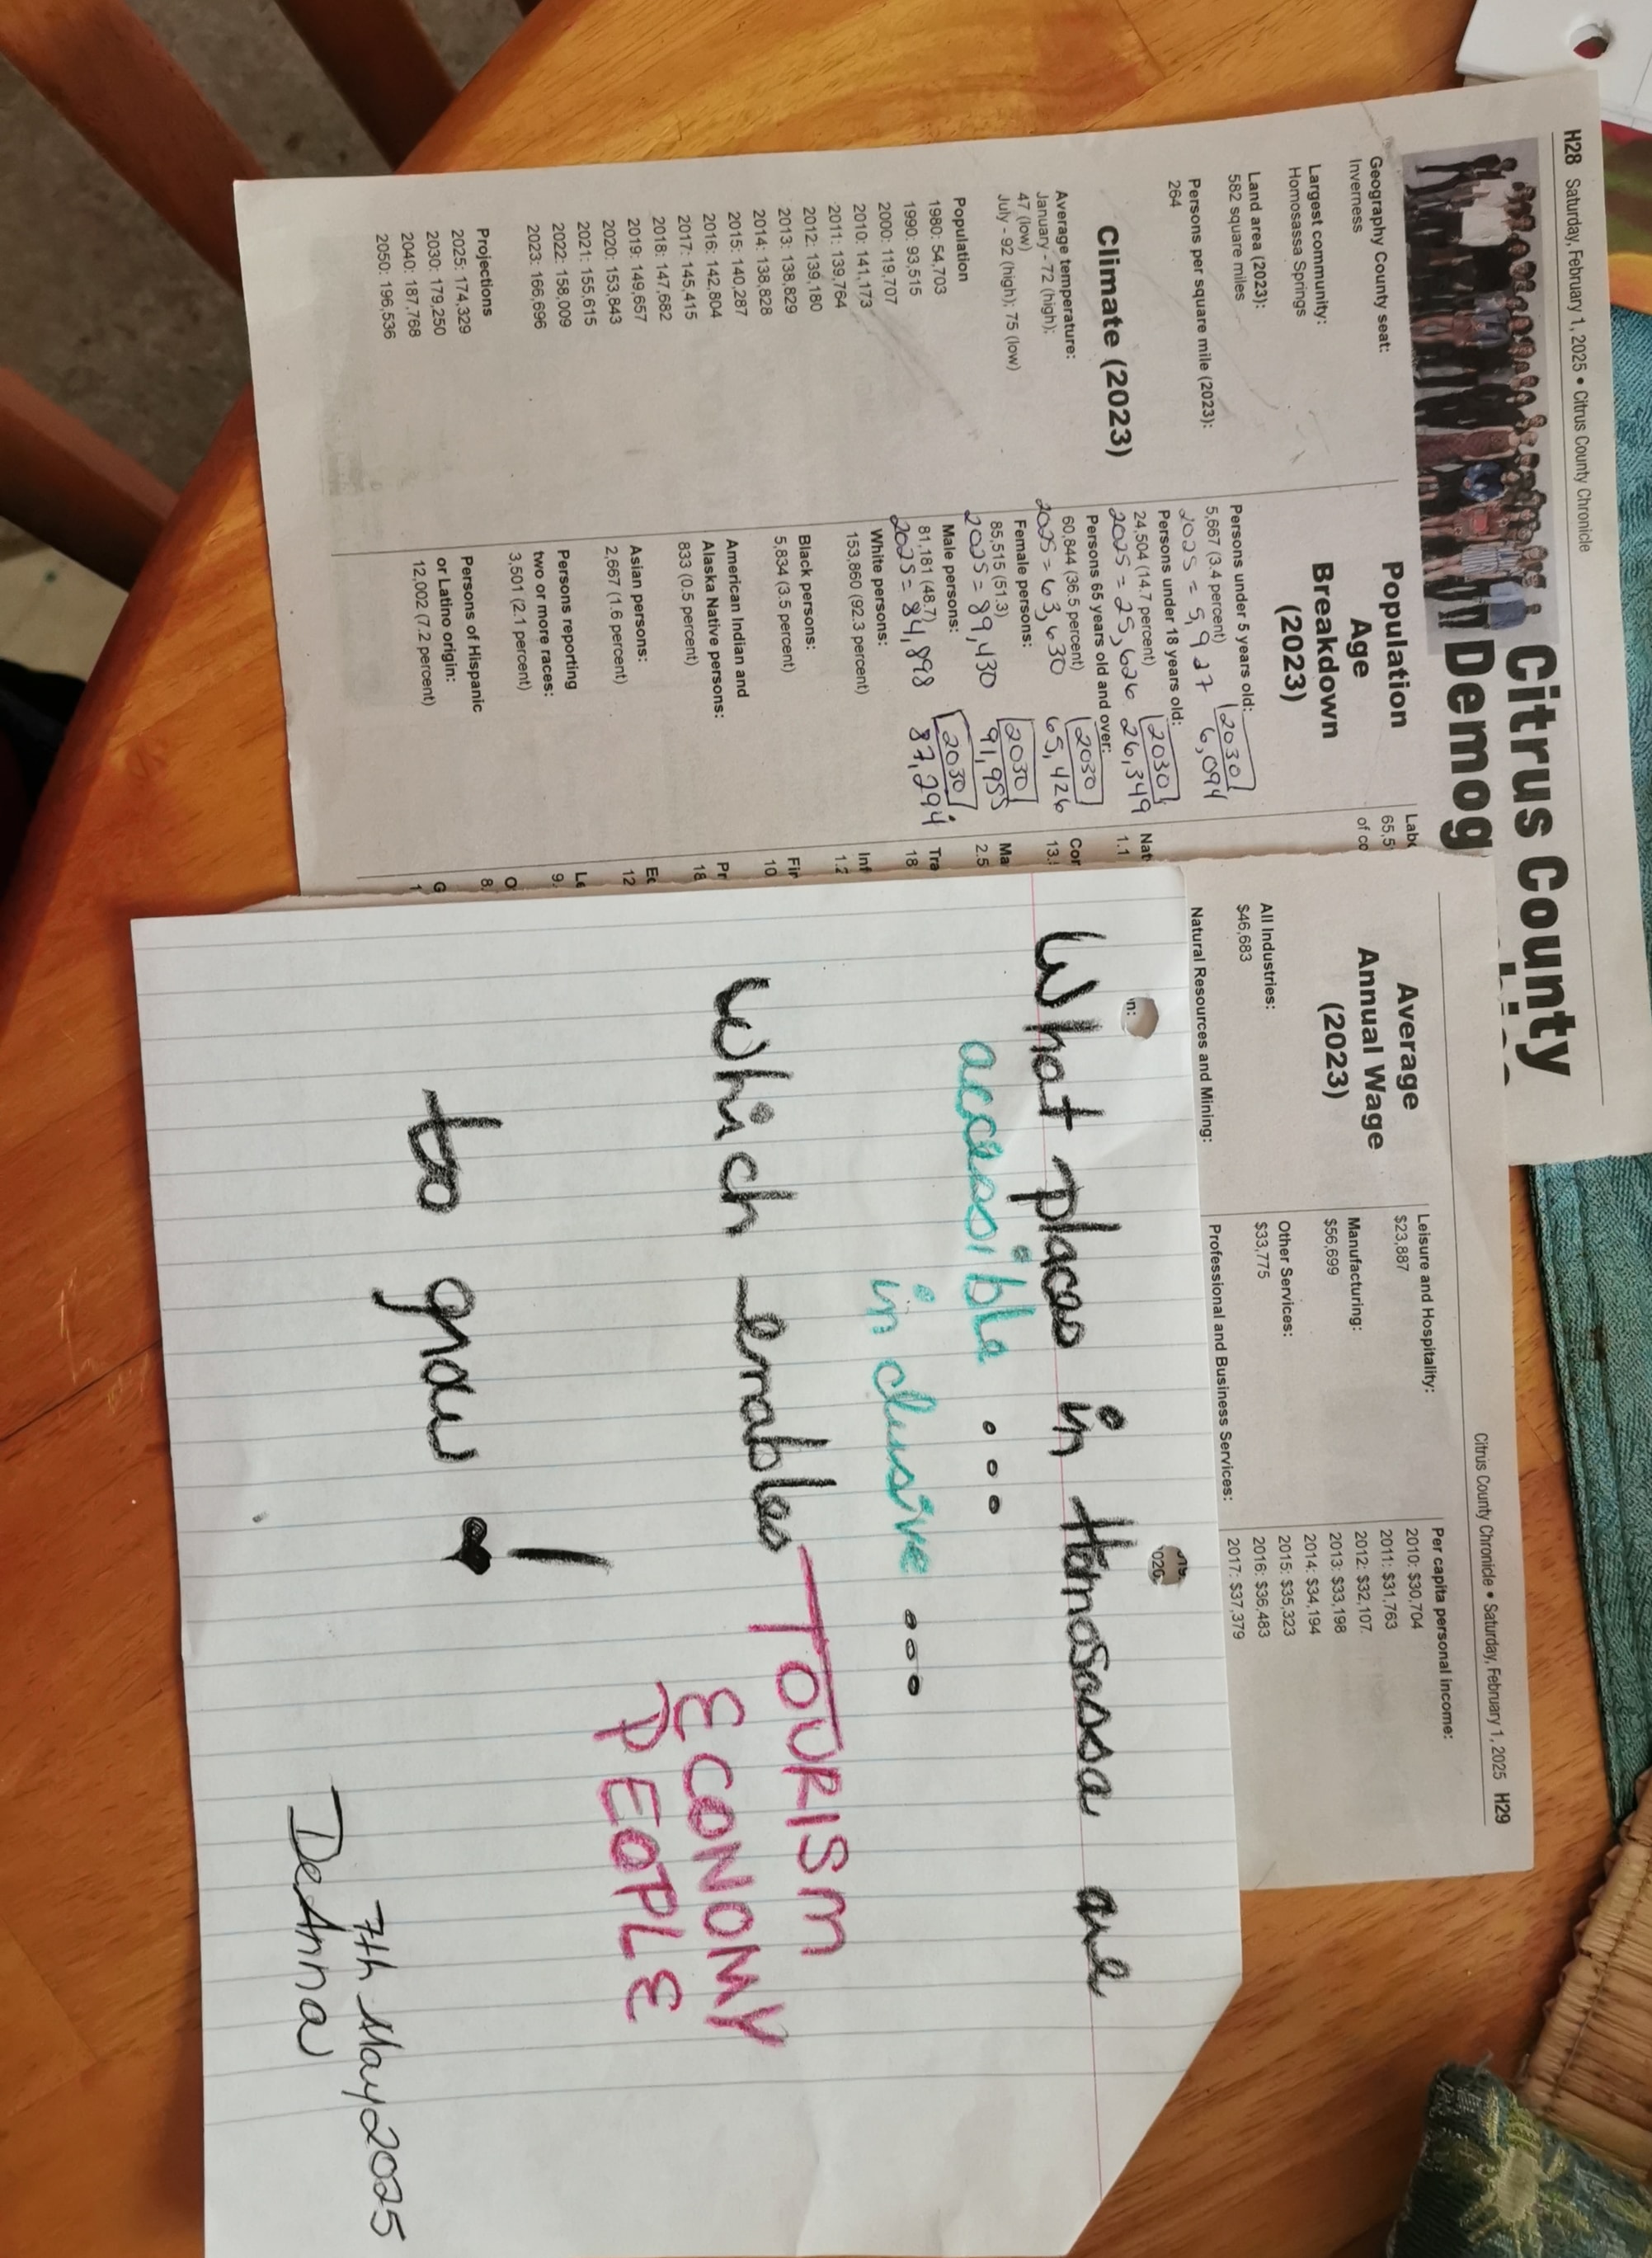 H28 Saturday, February 1, 2025 • Citrus County Chronicle
Citrus County
Demog
Geography County seat:
Inverness
Largest community:
Homosassa Springs
Land area (2023):
582 square miles
Persons per square mile (2023):
264
Climate (2023)
Average temperature:
January - 72 (high);
47 (low)
July - 92 (high); 75 (low)
Population
1980: 54,703
1990: 93,515
2000: 119,707
2010: 141,173
2011: 139,764
2012: 139,180
2013: 138,829
2014: 138,828
2015: 140,287
2016: 142,804
2017: 145,415
2018: 147,682
2019: 149,657
2020: 153,843
2021: 155,615
2022: 158,009
2023: 166,696
Projections
2025: 174,329
2030: 179,250
2040: 187,768
2050: 196,536
Population
Age
Breakdown
(2023)
Persons under 5 years old:
5,667 (3.4 percent)
2030
2025 = 5,927 6,094
Persons under 18 years old:
24,504 (14.7 percent)
2030
2025 = 25,626 26,349
Persons 65 years old and over:
60,844 (36.5 percent)
2030
2025 = 63,630 65,426
Female persons:
85,515 (51.3)
2030
2025 = 89,430 91,955
Male persons:
81,181 (48.7)
2030
2025 = 84,898 87,294
White persons:
153,860 (92.3 percent)
Black persons:
5,834 (3.5 percent)
American Indian and
Alaska Native persons:
833 (0.5 percent)
Asian persons:
2,667 (1.6 percent)
Persons reporting
two or more races:
3,501 (2.1 percent)
Persons of Hispanic
or Latino origin:
12,002 (7.2 percent)
Labo
65,5
of co
Nat
1.1
Cor
13.
Ma
2.5
Tra
18
Inf
1.2
Fir
10
Pr
18
Ec
12
Le
9.
O
8.
G
1
Citrus County Chronicle • Saturday, February 1, 2025 H29
Average
Annual Wage
(2023)
All Industries:
$46,683
Natural Resources and Mining:
n:
Leisure and Hospitality:
$23,887
Manufacturing:
$56,699
Other Services:
$33,775
Professional and Business Services:
Per capita personal income:
2010: $30,704
2011: $31,763
2012: $32,107
2013: $33,198
2014: $34,194
2015: $35,323
2016: $36,483
2017: $37,379
020
What places in Homosassa are
accessible ...
inclusive ...
which enables TOURISM
ECONOMY
PEOPLE
to grow!
7th May 2025
DeAnna